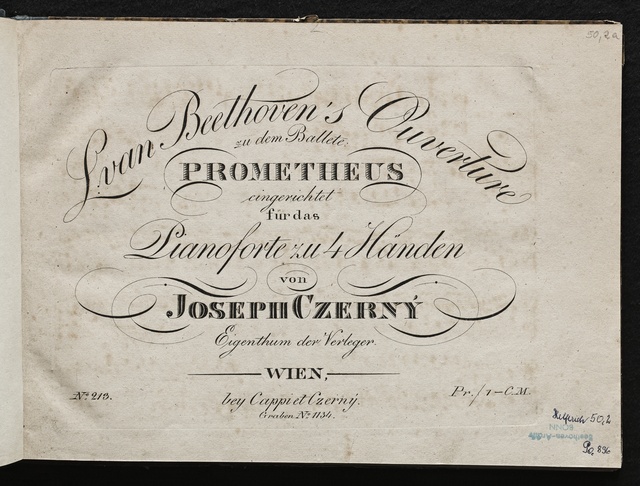 50,2a
L. van Beethoven's Ouverture
zu dem Ballete:
PROMETHEUS
eingerichtet
für das
Pianoforte zu 4 Händen
von
JOSEPH CZERNÝ
Eigenthum der Verleger.
WIEN,
No. 213.
bey Cappi et Czerný.
Pr. f 1 — C.M.
Graben No. 1134.
50,2
Beethoven-Archiv
BONN
896